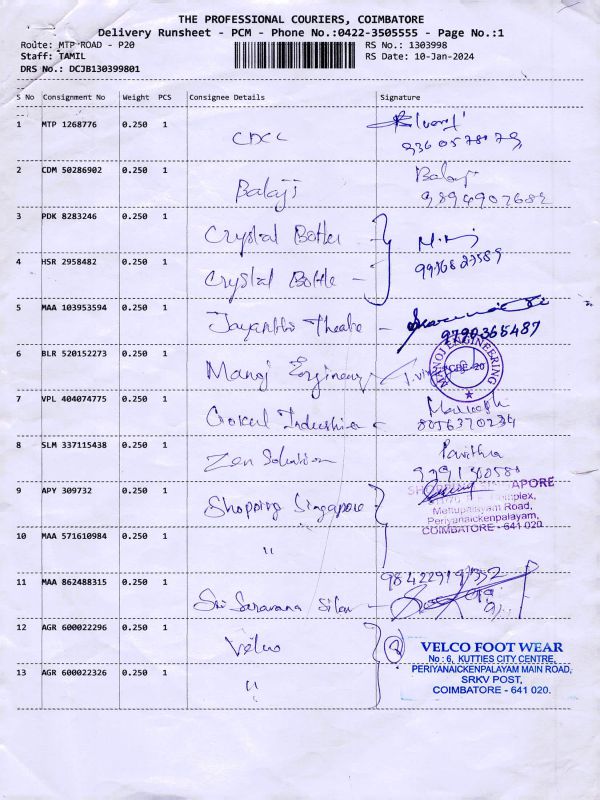 THE PROFESSIONAL COURIERS, COIMBATORE
Delivery Runsheet - PCM - Phone No.:0422-3505555 - Page No.:1
Route: MTP ROAD - P20
RS No.: 1303998
Staff: TAMIL
RS Date: 10-Jan-2024
DRS No.: DCJB130399801
S No Consignment No Weight PCS Consignee Details Signature
1 MTP 1268776 0.250 1 CDCC
9360578179
2 CDM 50286902 0.250 1 Balaji Balaji
9894907682
3 PDK 8283246 0.250 1 Crystal Bottle
4 HSR 2958482 0.250 1 Crystal Bottle
5 MAA 103953594 0.250 1 Jayanthi Theatre
9790365487
6 BLR 520152273 0.250 1 Manoj Engineering
MANOJ ENGINEERING
7 VPL 404074775 0.250 1 Gokul Industries
8056370234
8 SLM 337115438 0.250 1 Zen Solution Pavithra
9 APY 309732 0.250 1 Shopping Singapore
SHOPPING SINGAPORE
Complex,
Mettupalayam Road,
Periyanaickenpalayam,
COIMBATORE - 641 020
10 MAA 571610984 0.250 1 "
11 MAA 862488315 0.250 1 Sri Saravana Silou
12 AGR 600022296 0.250 1 Velco
VELCO FOOT WEAR
No : 6, KUTTIES CITY CENTRE,
PERIYANAICKENPALAYAM MAIN ROAD,
SRKV POST,
COIMBATORE - 641 020.
13 AGR 600022326 0.250 1 "